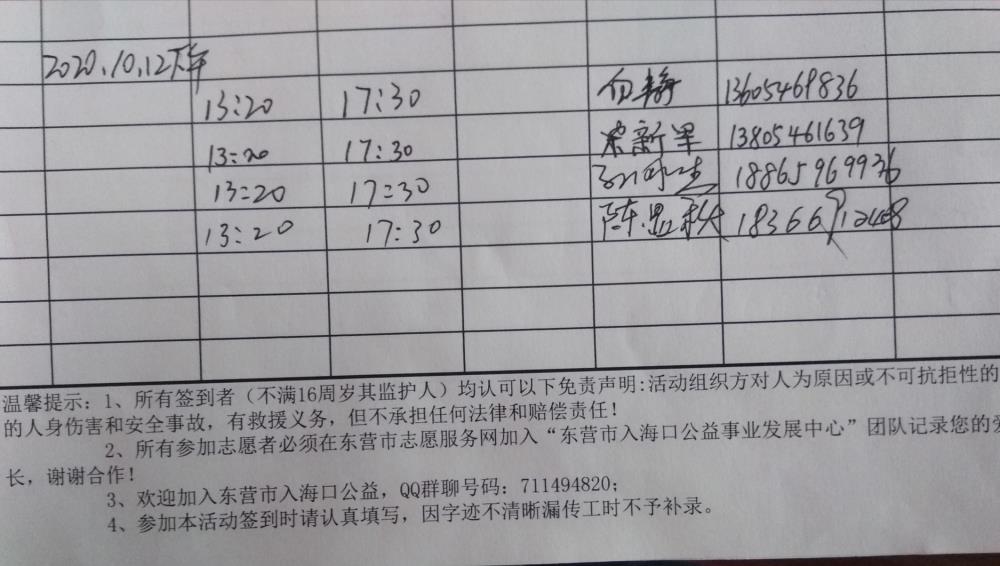 2020.10.12下午
13:20 17:30 13605469836
13:20 17:30 13805461639
13:20 17:30 18865969936
13:20 17:30 陈显秋
温馨提示：1、所有签到者（不满16周岁其监护人）均认可以下免责声明:活动组织方对人为原因或不可抗拒性的
的人身伤害和安全事故，有救援义务，但不承担任何法律和赔偿责任！
2、所有参加志愿者必须在东营市志愿服务网加入“东营市入海口公益事业发展中心”团队记录您的
长，谢谢合作！
3、欢迎加入东营市入海口公益，QQ群聊号码：711494820；
4、参加本活动签到时请认真填写，因字迹不清晰漏传工时不予补录。